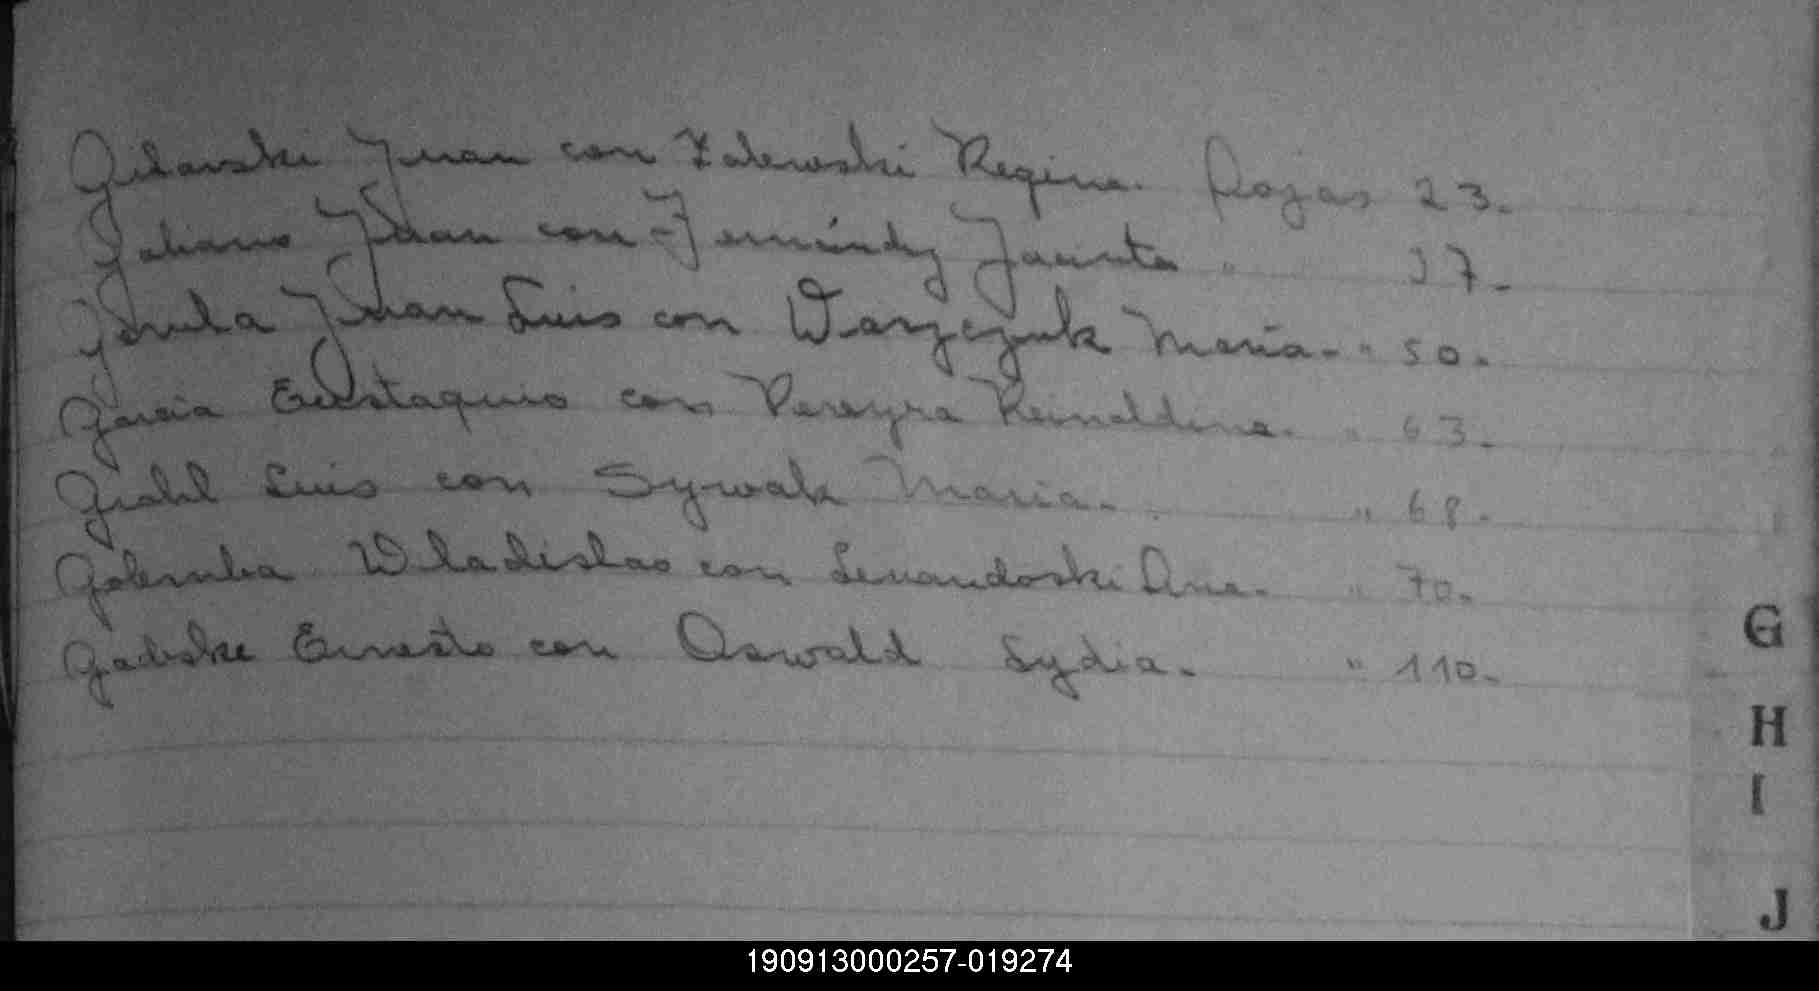 Gilavski Juan con Zalewski Regina. Fojas 23.
Galiano Juan con Fernández Jacinta " 37.
Juan Luis con Waszczuk María. " 50.
Garcia Eustaquio con Pereyra Reinaldina. " 63.
Grahl Luis con Sywak Maria. " 68.
Golemba Wladislao con Lewandoski Ana. " 70.
Gadiske Ernesto con Oswald Lydia. " 110.
G
H
I
J
190913000257-019274